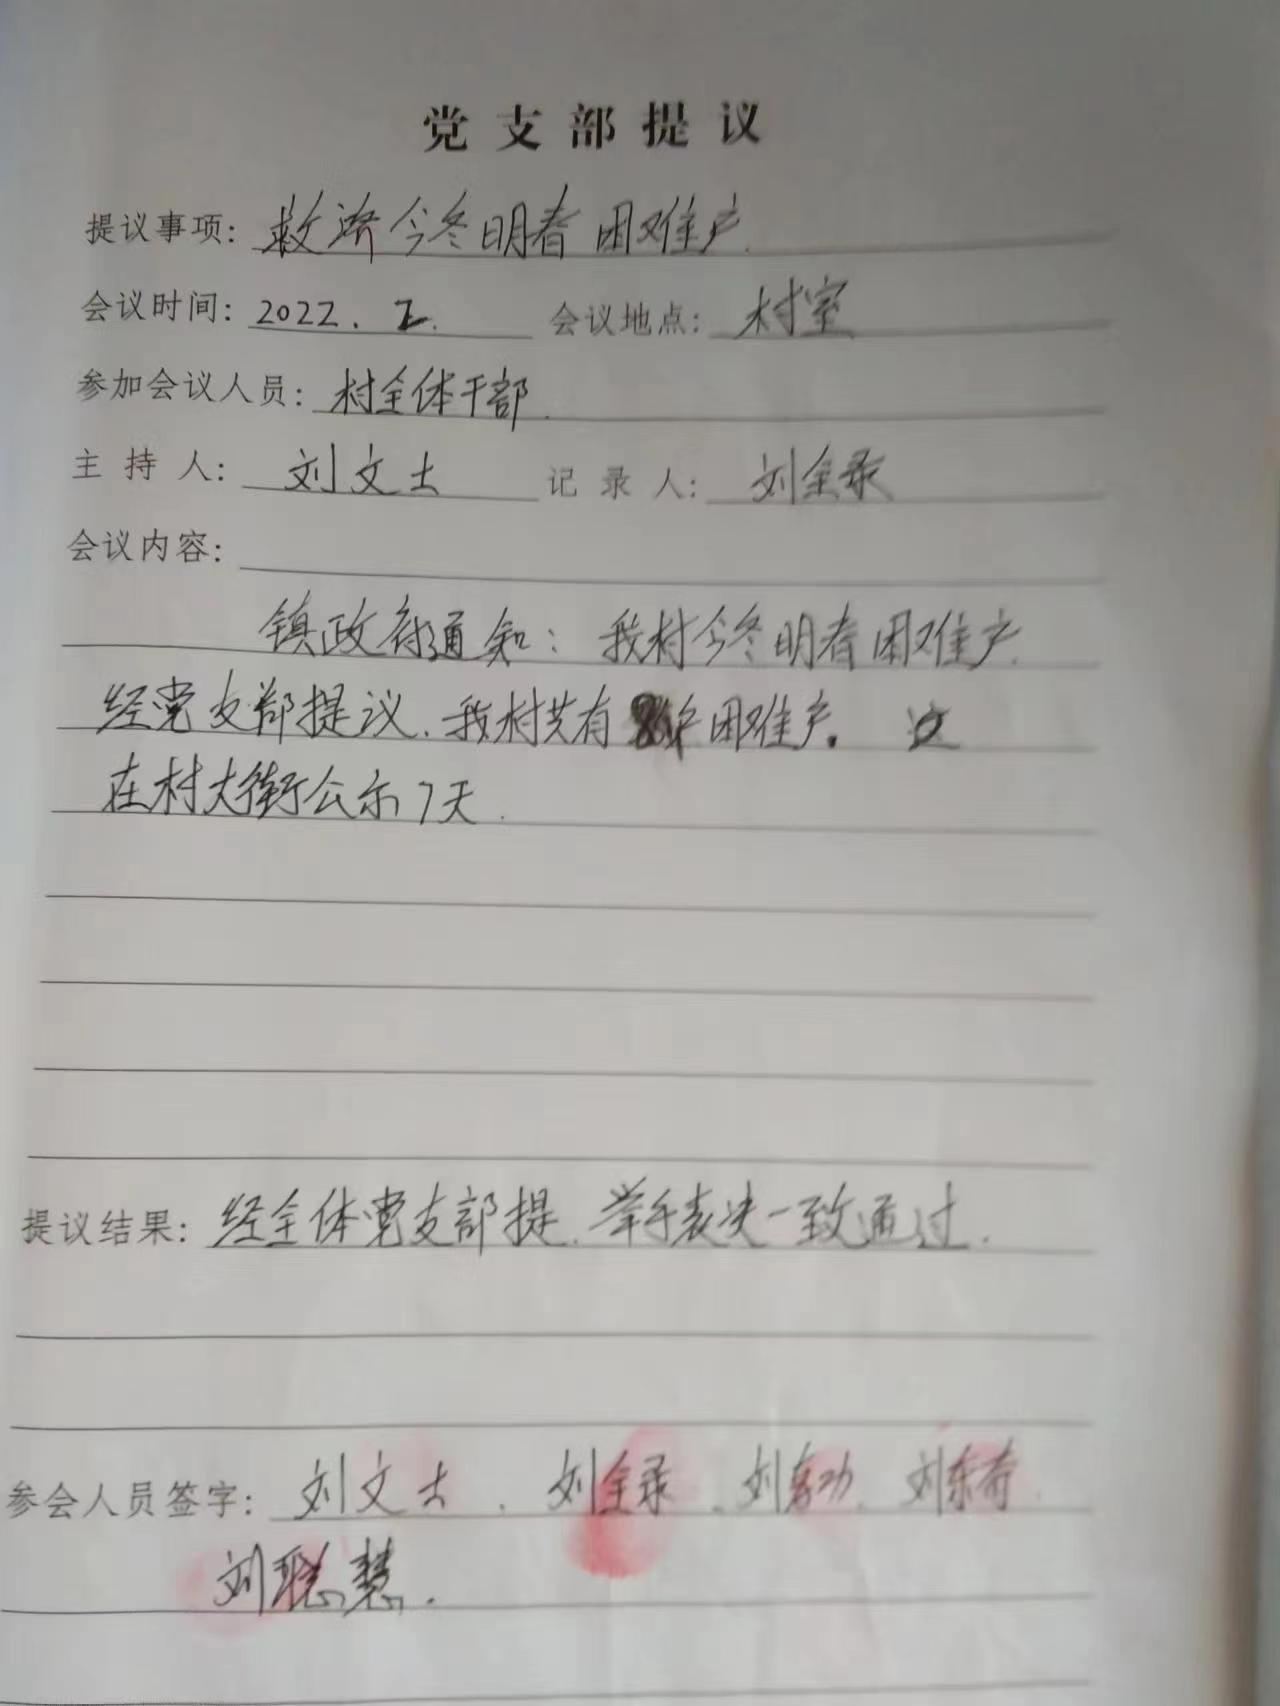 党支部提议
提议事项：救济今冬明春困难户.
会议时间：2022.2. 会议地点：村室
参加会议人员：村全体干部.
主持人：刘文士 记录人：刘全录
会议内容：
镇政府通知：我村今冬明春困难户.
经党支部提议.我村共有 困难户.
在村大街公示7天.
提议结果：经全体党支部提.举手表决一致通过.
参会人员签字：刘文士.刘全录.刘 功.刘东奇.
刘聪慧.